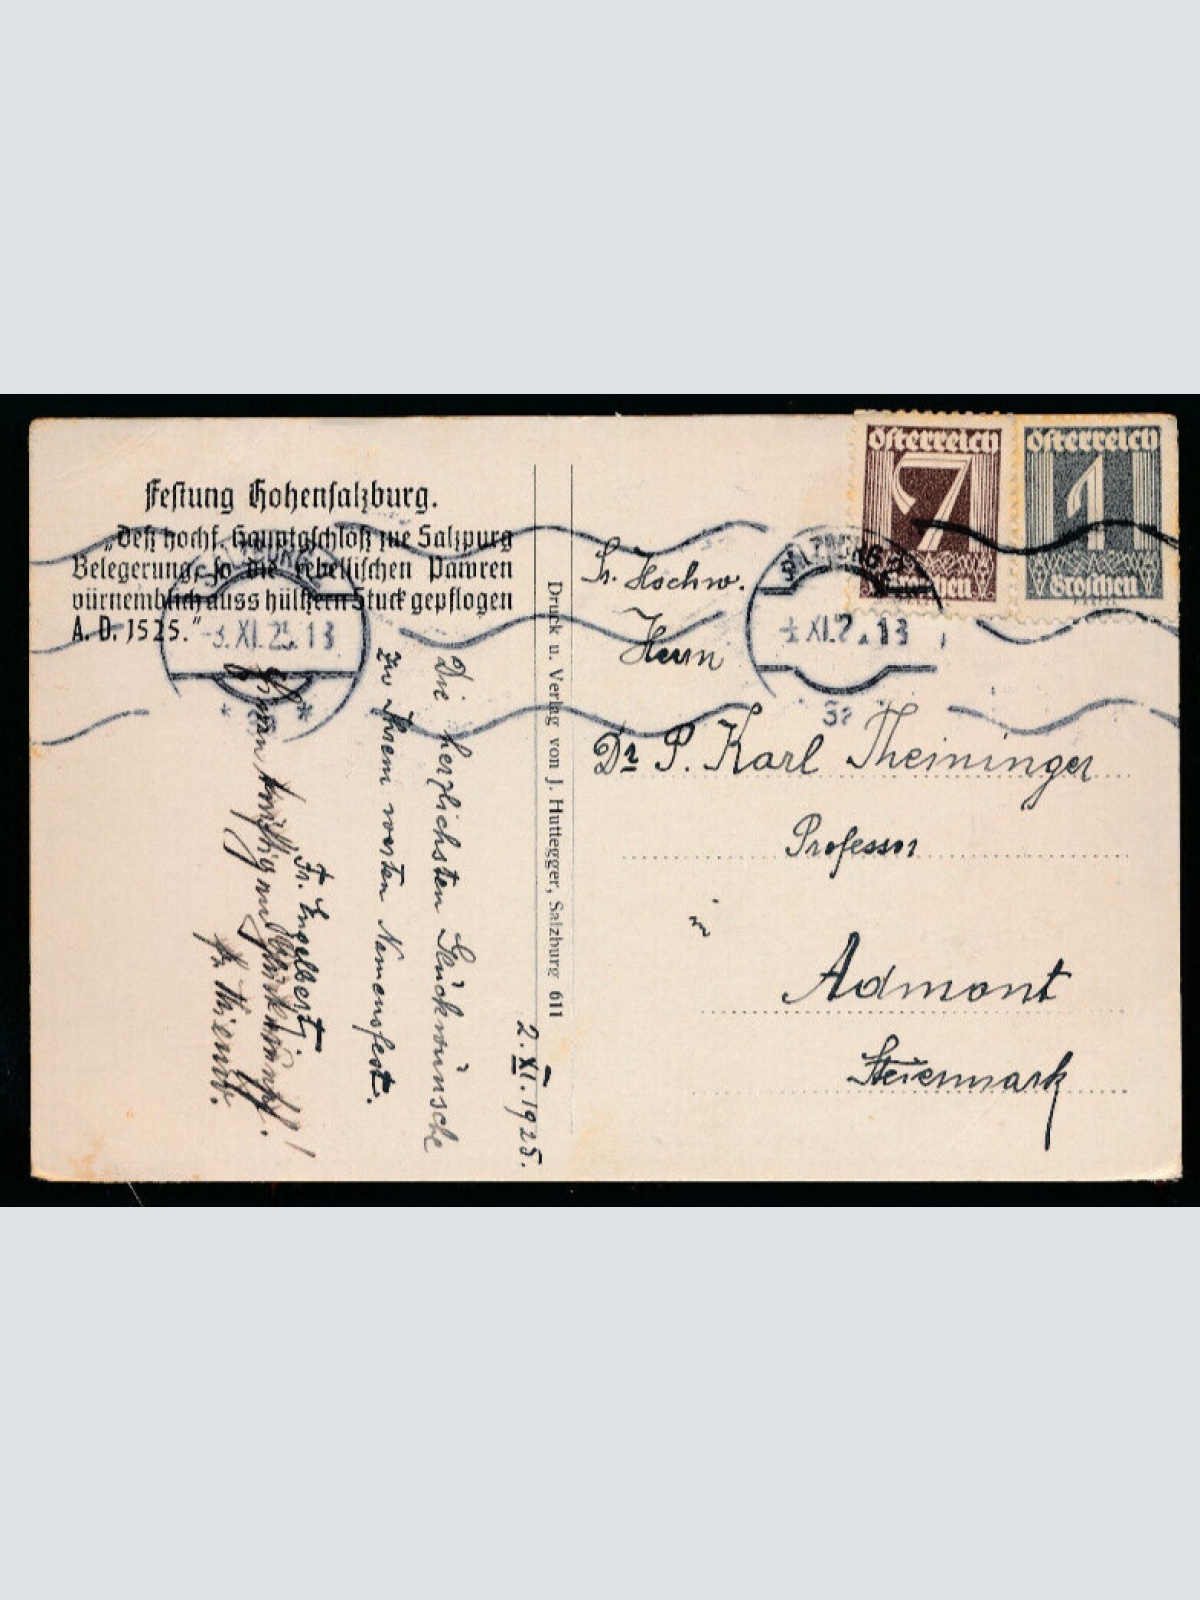 Festung Hohensalzburg.
„Deß hochf. Hauptgschlöß zue Salzpurg
Belegerung, so die rebellischen Pawren
vürnemblich auss hülßern Stuck gepflogen
A. D. 1525.“
SALZBURG
-3. XI. 25. 13
2. XI. 1925.
Die herzlichsten Glückwünsche
zu Ihrem werten Namensfest.
Fr. Engelbert
Druck u. Verlag von J. Huttegger, Salzburg 611
österreich
7
Groschen
österreich
1
Groschen
SALZBURG 2
XI. 13
Sr. Hochw.
Herrn
Dr P. Karl Theininger
Professor
in
Admont
Steiermark